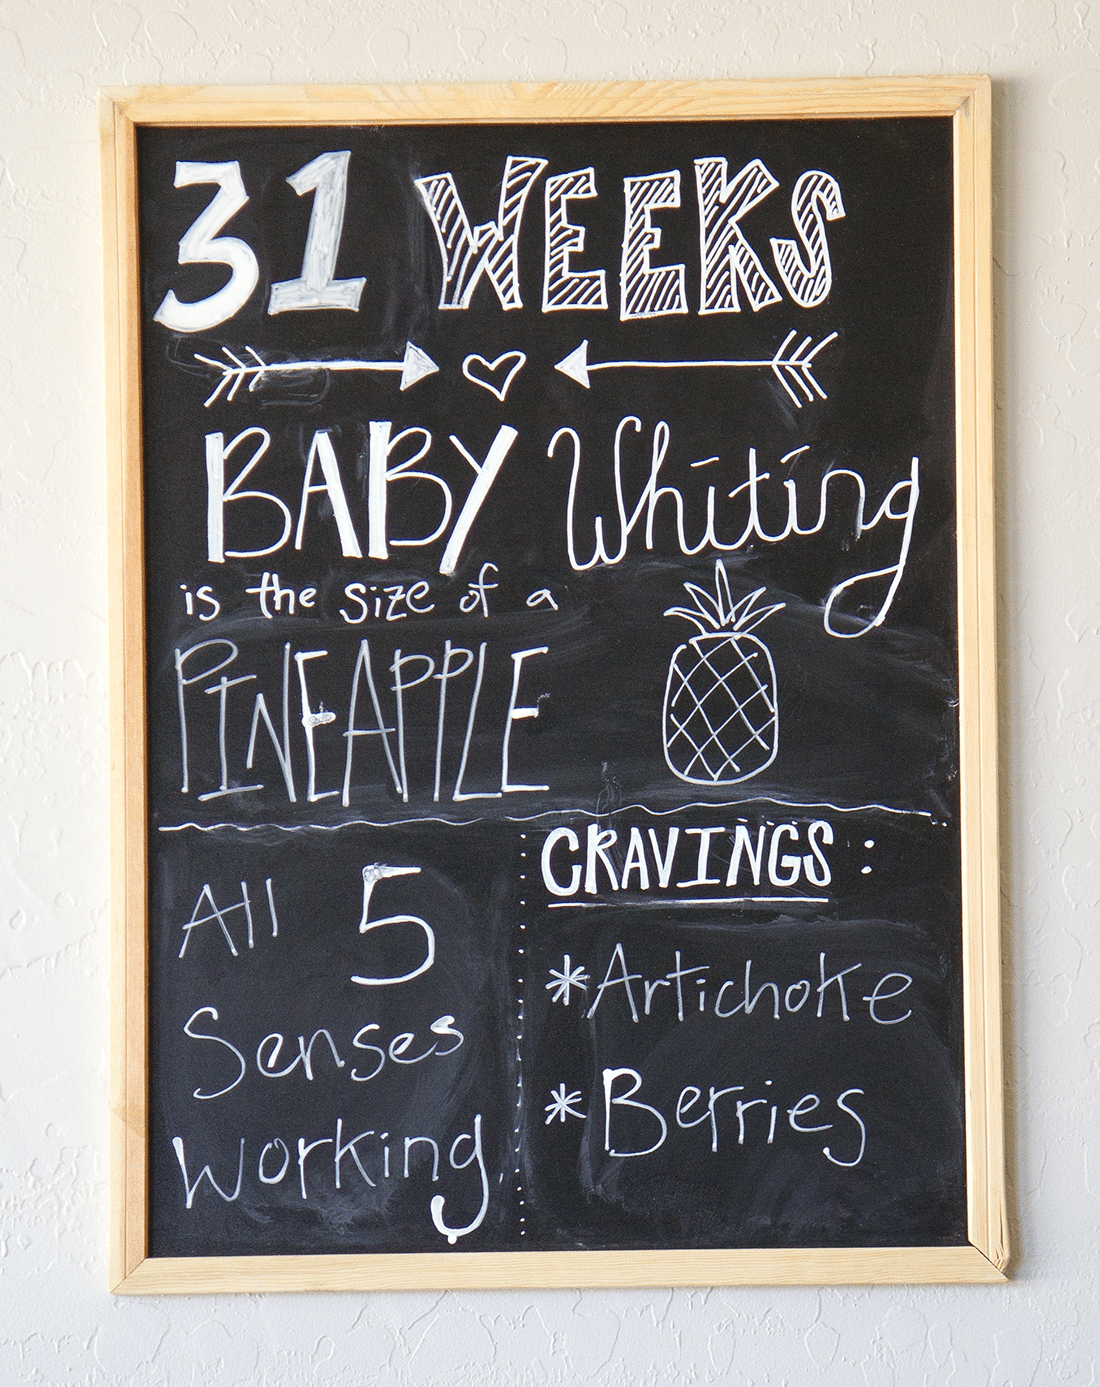 31 WEEKS
BABY Whiting
is the size of a
PINEAPPLE
All 5
Senses
Working
CRAVINGS:
*Artichoke
*Berries